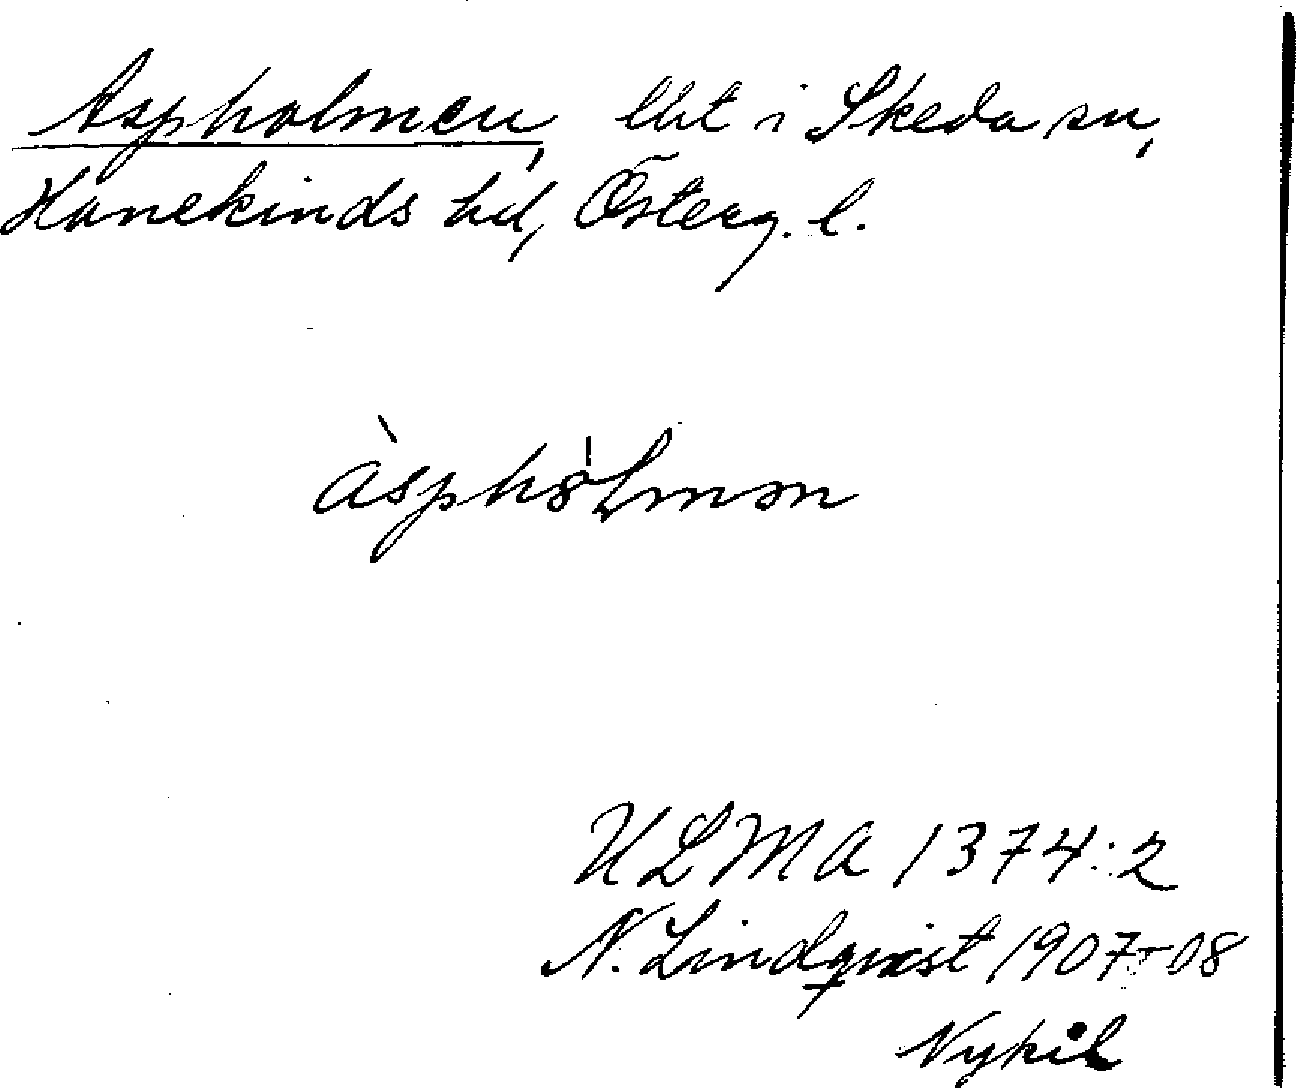 Aspholmen, lht i Skeda sn,
Hanekinds hd, Österg. l.
àsphȯ̀lmən
ULMA 1374:2
N. Lindqvist 1907-08
Nykil